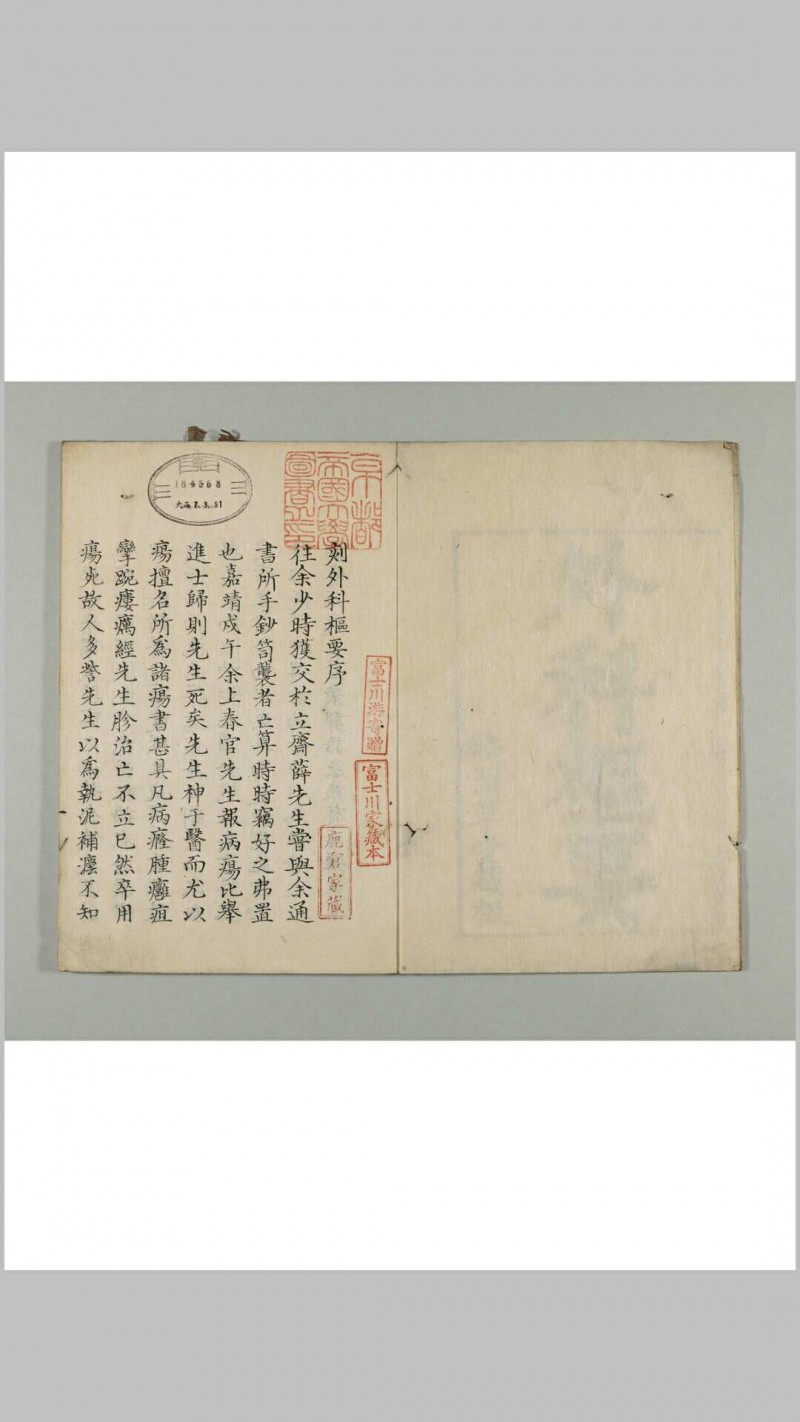 刻外科樞要序
往余少時獲交於立齋薛先生嘗與余通
書所手鈔笥襲者亡算時時竊好之弗置
也嘉靖戊午余上春官先生報病瘍比舉
進士歸則先生死矣先生神于醫而尤以
瘍擅名所爲諸瘍書甚具凡病癃腫癰疽
攣踠瘻癘經先生胗治亡不立已然卒用
瘍死故人多訾先生以爲執泥補瀍不知
京都
帝國大學
圖書之印
富士川游寄贈
富士川家藏本
家藏
184568
大正7.3.31